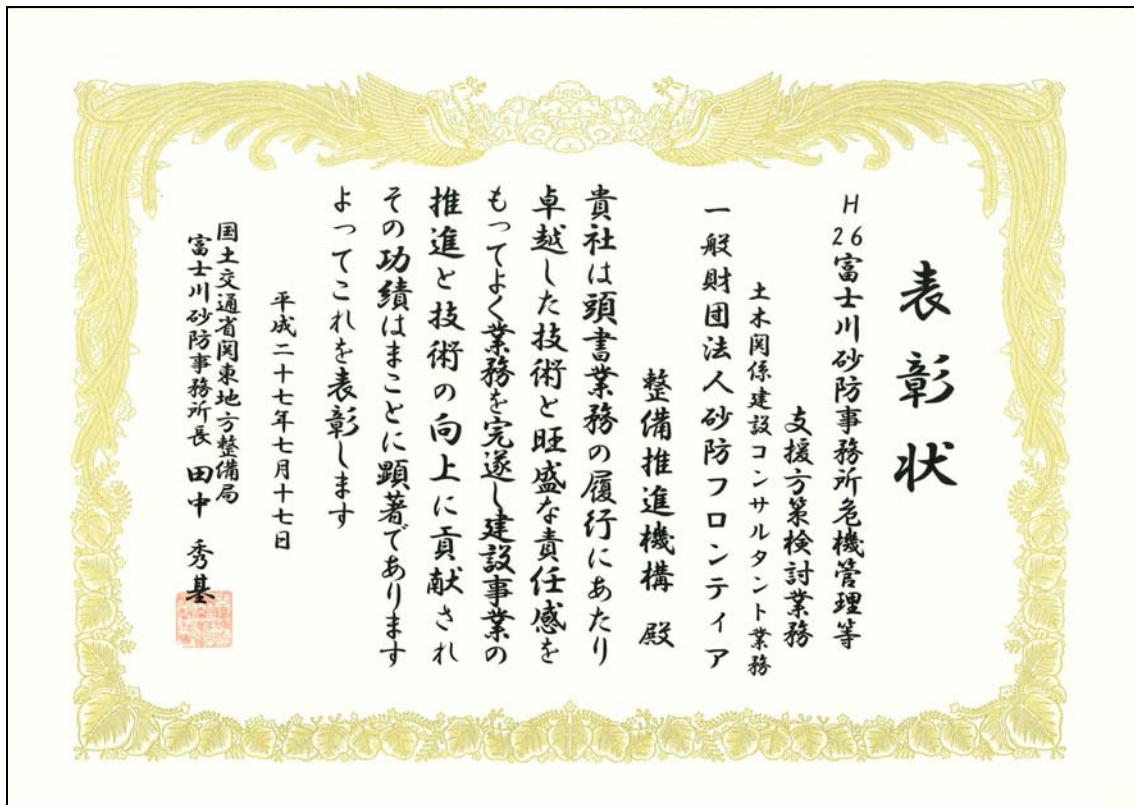 表彰状
H26富士川砂防事務所危機管理等
支援方策検討業務
土木関係建設コンサルタント業務
一般財団法人砂防フロンティア
整備推進機構 殿
貴社は頭書業務の履行にあたり
卓越した技術と旺盛な責任感を
もってよく業務を完遂し建設事業の
推進と技術の向上に貢献され
その功績はまことに顕著であります
よってこれを表彰します
平成二十七年七月十七日
国土交通省関東地方整備局
富士川砂防事務所長 田中 秀基